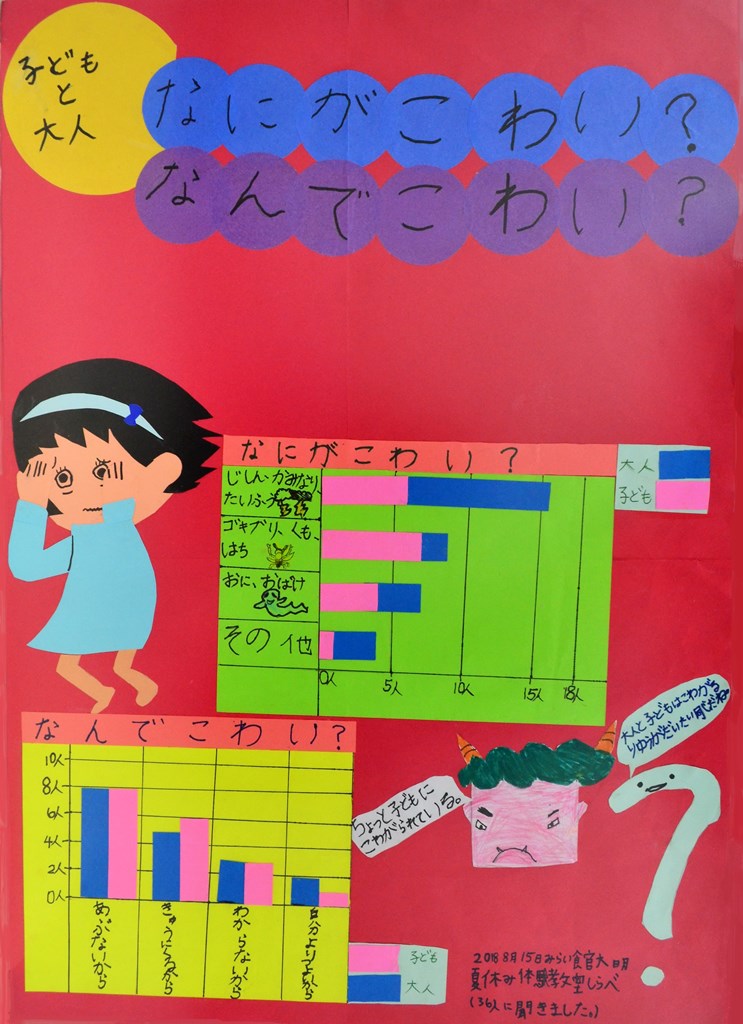 子ども
と
大人
なにがこわい?
なんでこわい?
なにがこわい?
大人
子ども
じしん・かみなり
たいふう
ゴキブリ、くも、
はち
おに、おばけ
その他
0人 5人 10人 15人 18人
なんでこわい?
10人
8人
6人
4人
2人
0人
あぶないから
きゅうにくるから
わからないから
自分よりつよいから
子ども
大人
ちょっと子どもに
こわがられている。
大人と子どもはこわがる
りゆうがだいたい同じだね
?
2018 8月15日みらい食官大明
夏休み体験教室しらべ
(36人に聞きました。)